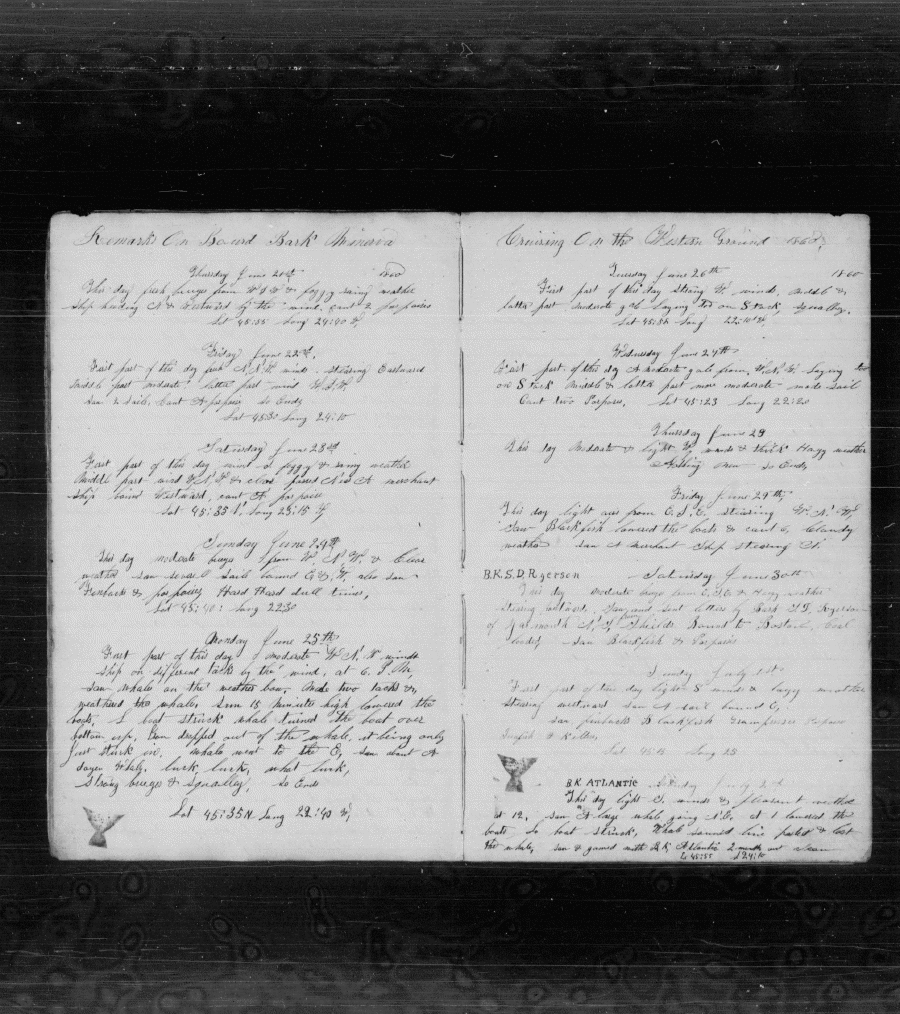 Remarks On Board Bark Minerva
Thursday June 21st 1860
This day fresh breeze from W S W & foggy rainy weather
ship heading N & Westward by the wind, cant 2 porpoises
Lat 45:55 Long 24:40 W,
Friday June 22nd,
First part of the day fresh N.N.W. wind steering Eastward
middle part moderate latter part wind W.S.W.
saw 2 sails. Cant A porpoise so Ends
Lat 45:30 Long 24:10
Saturday June 23rd
First part of this day wind foggy & rainy weather
Middle part wind W.N.W & clear A merchant
ship bound Westward, cant A porpoise
Lat 45:35 N, Long 23:15 W
Sunday June 24th
This day moderate breeze from W. N W. & Clear
weather saw several sails bound E & W. also saw
Finbacks & porpoises Hard Hard dull times,
Lat 45:40: Long 22:30
Monday June 25th
First part of this day moderate W N. W winds
ship on different tacks by the wind, at 6. P. M,
saw whale on the weather bow. Made two tacks &,
weathered the whale, sun 15 minutes high lowered the
boats, L boat struck whale turned the boat over
bottom up, Iron dropped out of the whale, it being only
just stuck on. Whale went to the E, saw about A
dozen whales. luck luck, what luck,
Strong breeze & squally, so Ends
Lat 45:35 N Long 22:40 W,
Cruising On the Western Ground 1860,
Tuesday June 26th 1860
First part of this day strong W. winds, middle &
latter part moderate gale laying too on S tack, squally.
Lat 45:31 Long 22:10 W,
Wednesday June 27th
First part of the day A moderate gale from W.N.W. laying too
on S tack Middle & latter part more moderate made sail
Cant two Porpoises, Lat 45:23 Long 22:20
Thursday June 28
This day Moderate & light W winds & thick Hazy weather
Nothing seen so Ends
Friday June 29th,
This day light airs from E. S. E. steering W. N. W,
Saw Blackfish lowered the boats & cant 6, Cloudy
weather saw A Merchant Ship steering
B.K.S.D.Ryerson Saturday June 30th
This day moderate breeze from E.S.E & Hazy weather
steering westward. Gam and sent letters by Bark S.D. Ryerson
of Yarmouth N.S, Shields Bound to Boston, Coal
loaded, saw Blackfish & Porpoises
Sunday July 1st
First part of this day light S wind & hazy weather
steering westward saw A sail bound E,
saw finbacks Blackfish Grampuses Porpoises
& Killer,
Lat 45:13 Long 23
B.K. ATLANTIC Monday July 2nd
This day light S. winds & pleasant weather
at 12, saw A large whale going N.E. at 1 lowered the
boats, so boat struck, Whale sounded line parted & lost
the whale, saw & gamed with B.K. Atlantic 2 months out clean
L 45:55 L 24:10